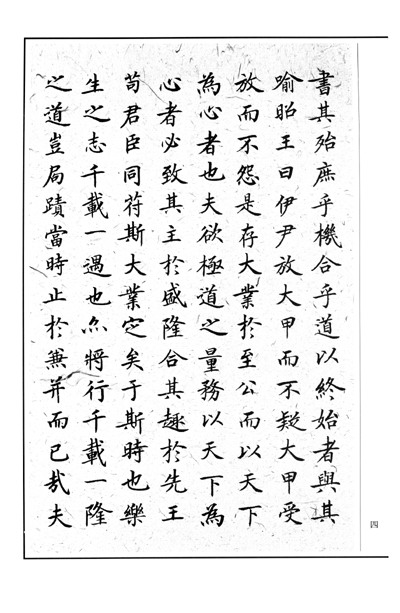 書其殆庶乎機合乎道以終始者與其
喻昭王曰伊尹放大甲而不疑大甲受
放而不怨是存大業於至公而以天下
為心者也夫欲極道之量務以天下為
心者必致其主於盛隆合其趣於先王
苟君臣同符斯大業定矣于斯時也樂
生之志千載一遇也亦將行千載一隆
之道豈局蹟當時止於兼并而已哉夫
四